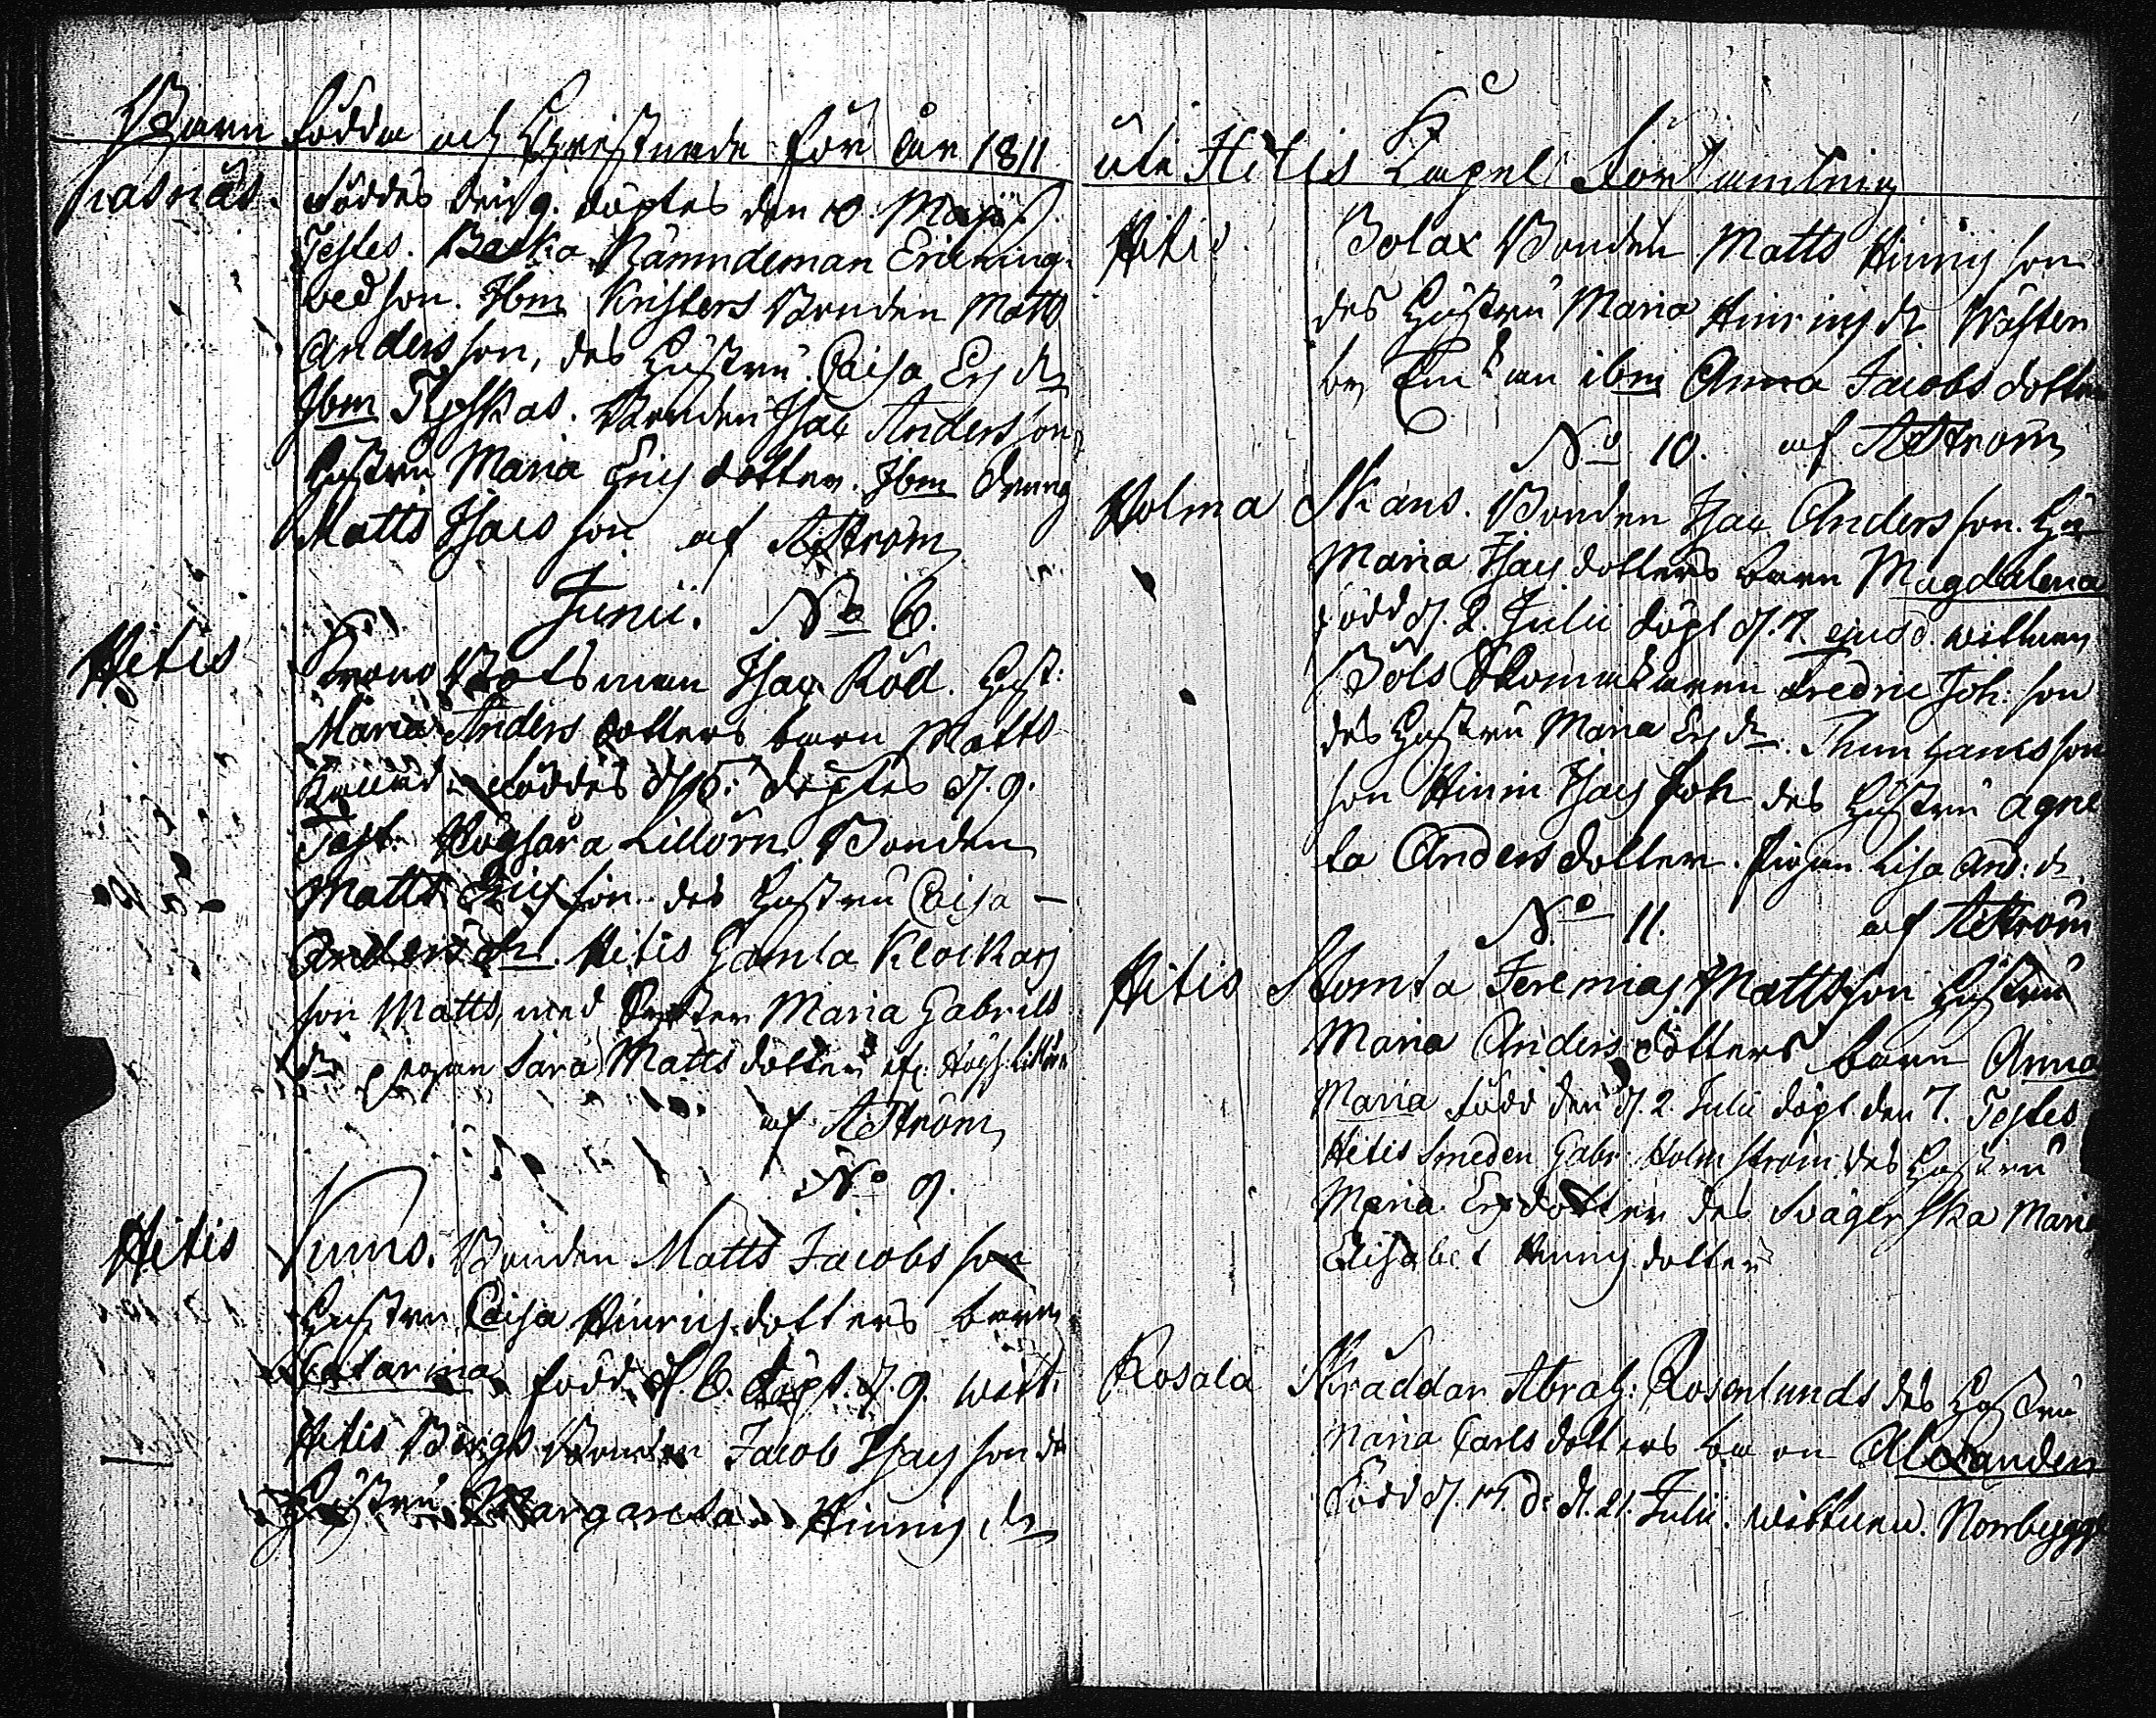 Barn födda och Christnade för år 1811
Kasnäs. föddes den 9. döptes den 10 Maji
Testes. Backa Nämndeman Eric Ing-
vedson. Ibm Kristers Bonden Matts
Andersson, des Hustru Caisa Ers dr
Ibm Tyskas. Bonden Isac Andersson
Hustru Maria Erics dotter. Ibm Dreng
Matts Isacsson af Åström
Junii. No 8.
Hitis Krono Båtsman Isac Röd. Hust:
Maria Anders dotters barn Matts
föddes d. döptes d. 9.
Test. Högsåra Lillörn Bonden
Matts Ericsson des Hustru Caisa –
Anders dr. Hitis Gamla Klockars
son Matts, med Syster Maria Gabriels
dr pigan Sara Matts dotter Högs. Lillörn
af Åström
No 9.
Hitis Nums. Bonden Matts Jacobsson
Hustru Caisa Hinrics dotters barn
Catarina född d. 6. döpt. d. 9. witt:
Hitis Bergs Bonden Jacob Isacsson ds
Hustru Margareta Hinrics dr
uti Hitis Kapell Församling
Hitis Bolax Bonden Matts Hinricsson
des Hustru Maria Hinrics dr Wäster
by Enkan ibm Anna Jacobs dotter
No 10. af Åström
Holma Skans. Bonden Isac Andersson. Hu
Maria Isacs dotters barn Magdalena
född d. 2. Julii döpt d. 7. ejusd. wittnen
Böls Skomakaren Fredric Joh: son
des Hustru Maria Ers dr.
son Hinric Isacs des Hustru Agne
ta Anders dotter. Pigan Lisa And: dr.
No 11. af Åström
Hitis Stomta Jeremias Mattsson Hustru
Maria Anders dotters barn Anna
Maria född den d. 2. Julii döpt den 7. Testes
Hitis Smeden Gabr: Holmström des Hustru
Maria Ers dotter des Svägerska Maria
Elisabet Hinrics dotter
Rosala Skräddar Abrah: Rosenlunds des Hustru
Maria Carls dotters barn Alexander
född d. 15. dr d. 21. Julii. wittnen. Norrbygg